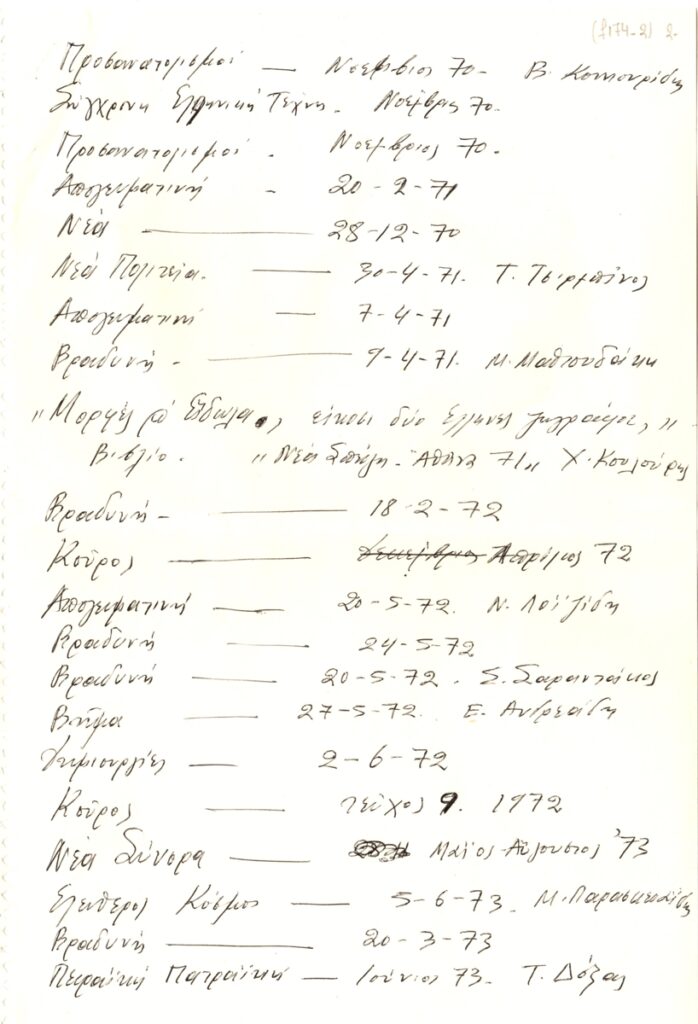 (f174-2) 2.
Προσανατολισμοί — Νοέμβριος 70- Β. Κοντουρίδης
Σύγχρονη Ελληνική Τέχνη - Νοέμβρης 70.
Προσανατολισμοί - Νοέμβριος 70.
Απογευματινή - 20-2-71
Νέα — 28-12-70
Νέα Πολιτεία. — 30-4-71. Τ.
Απογευματινή — 7-4-71
Βραδυνή - — 9-4-71. Μ.
"Μορφές Είδωλα, είκοσι δύο έλληνες ζωγράφοι,"-
Βιβλίο. "Νέα Σκέψη - Αθήνα 71" Χ. Κουλούρης
Βραδυνή - — 18-2-72
Κούρος — Δεκέμβριος Απρίλιος 72
Απογευματινή — 20-5-72. Ν. Λοϊζίδη
Βραδυνή — 24-5-72
Βραδυνή — 20-5-72. Σ. Σαραντάκος
Βήμα — 27-5-72. Ε. Ανδρεάδη
Δημιουργίες — 2-6-72
Κούρος — τεύχος 9. 1972
Νέα Σύνορα — Μάϊος-Αύγουστος '73
Ελεύθερος Κόσμος — 5-6-73. Μ. Παρασκευαΐδης
Βραδυνή — 20-3-73
Πειραϊκή Πατραϊκή — Ιούνιος 73. Τ. Δόξας